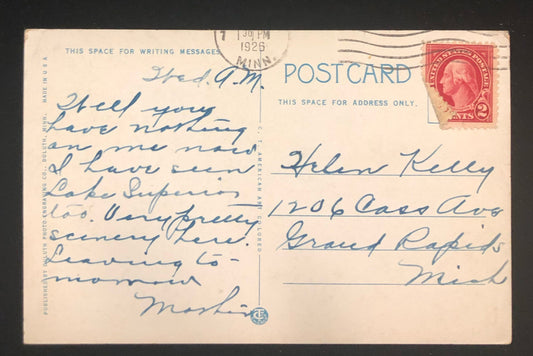 7 30 PM
1926
MINN.
THIS SPACE FOR WRITING MESSAGES
POSTCARD
THIS SPACE FOR ADDRESS ONLY.
UNITED STATES POSTAGE
2 CENTS
MADE IN U.S.A.
PUBLISHED BY DULUTH PHOTO ENGRAVING CO., DULUTH, MINN.
C.T. AMERICAN ART COLORED
Wed. A.M.
Well you
have nothing
on me now
I have seen
Lake Superior
too. Very pretty
scenery here.
Leaving to-
morrow
Helen Kelly
1206 Cass Ave
Grand Rapids
Mich